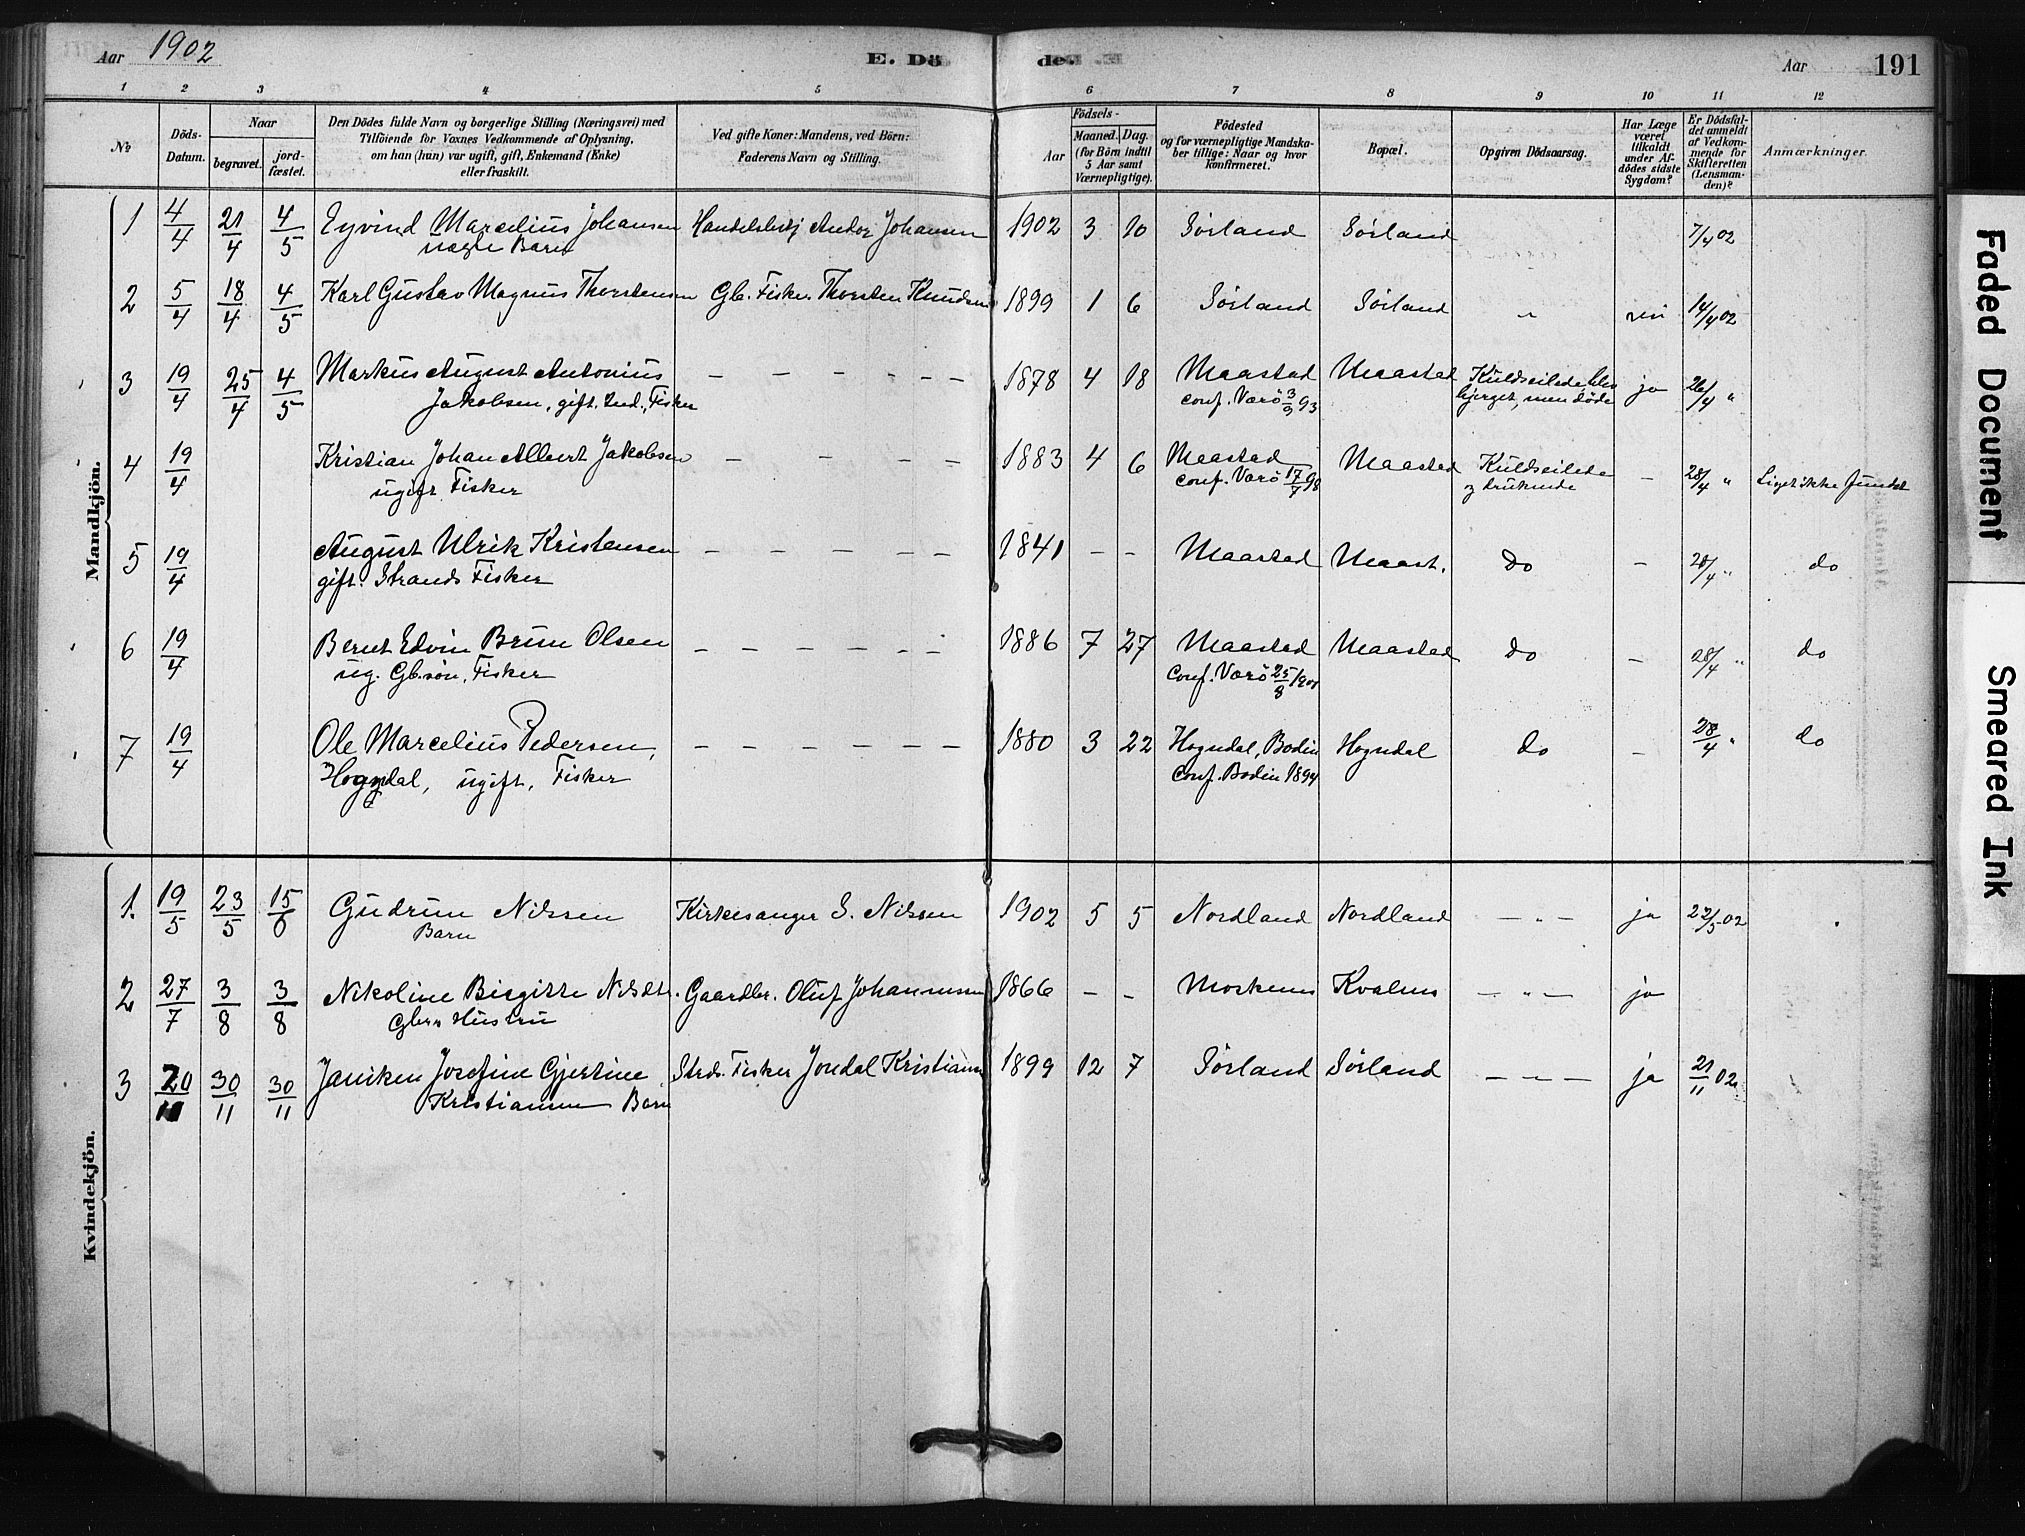 Aar 1902 E. Dö de. Aar 191
1 2 3 4 5 6 7 8 9 10 11 12
№
Döds-
Datum.
Naar
begravet.
jord-
fæstet.
Den Dödes fulde Navn og borgerlige Stilling (Næringsvei) med
Tilföiende for Voxnes Vedkommende af Oplysning,
om han (hun) var ugift, gift, Enkemand (Enke)
eller fraskilt.
Ved gifte Koner: Mandens, ved Börn:
Faderens Navn og Stilling.
Födsels-
Aar
Maaned. Dag.
(for Börn indtil
5 Aar samt
Værnepligtige).
Födested
og for værnepligtige Mandska-
ber tillige: Naar og hvor
konfirmeret.
Bopæl.
Opgiven Dödsaarsag.
Har Læge
været
tilkaldt
under Af-
dödes sidste
Sygdom?
Er Dödsfal-
det anmeldt
af Vedkom-
mende for
Skifteretten
(Lensman-
den)?
Anmærkninger.
Mandkjön.
1 4/4 21/4 4/5 Eyvind Marcelius Johansen Handelsbetj Andor Johansen 1902 3 10 Sörland Sörland 7/4 02
Barn
2 5/4 18/4 4/5 Karl Gustav Magnus Thorstensen Gb. Fisker Thorsten Knudsen 1899 1 6 Sörland Sörland " nei 14/4 02
3 19/4 25/4 4/5 Markus August Antonius – – – – – – 1878 4 18 Maastad Maastad Kuldseilede, blev ja 26/4 "
Jakobsen, gift. Ind., Fisker conf. Værö 93 bjerget, men døde
4 19/4 Kristian Johan Albert Jakobsen – – – – – 1883 4 6 Maastad Maastad Kuldseilede – 28/4 " Liget ikke fundet
ugift Fisker conf. Værö 17/7 98 og druknede
5 19/4 August Ulrik Kristensen – – – – – 1841 – – Maastad Maast. Do – 28/4 " do
gift. Strands Fisker
6 19/4 Bernt Edvin Brun Olsen – – – – – – 1886 7 27 Maastad Maastad Do – 28/4 " do
ug. Gb.søn, Fisker Conf. Værö
7 19/4 Ole Marcelius Pedersen, – – – – – – 1880 3 22 Hogndal, Bodin Hogndal do – 28/4 " do
Hogndal, ugift, Fisker Conf. Bodin 1894
Kvindekjön.
1. 19/5 23/5 15/6 Gudrun Nilssen Kirkesanger S. Nilssen 1902 5 5 Nordland Nordland – " – ja 22/5 02
Barn
2 27/7 3/8 3/8 Nikoline Birgitte Nilsdtr. Gaardbr. Oluf Johannessen 1866 – – Moskenes Kvalnes – " – ja
Gbr.s Hustru
3 20/11 30/11 30/11 Janiken Josefine Gjertine Strds. Fisker Jondal Kristiansen 1899 12 7 Sörland Sörland – " – ja 21/11 02
Kristiansen Barn
Faded Document
Smeared Ink